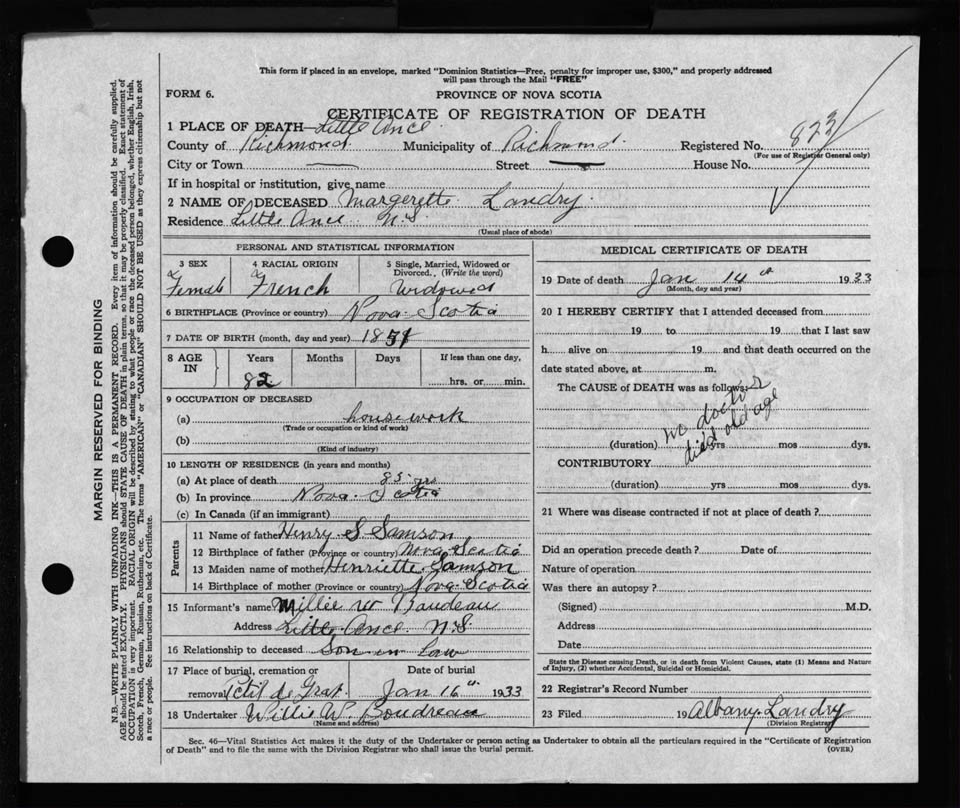 This form if placed in an envelope, marked "Dominion Statistics—Free, penalty for improper use, $300," and properly addressed
will pass through the Mail "FREE"
FORM 6.
PROVINCE OF NOVA SCOTIA
CERTIFICATE OF REGISTRATION OF DEATH
1 PLACE OF DEATH—Little Ance
County of Richmond Municipality of Richmond Registered No. 823
(For use of Registrar General only)
City or Town — Street — House No.
If in hospital or institution, give name
2 NAME OF DECEASED Margerette Landry
Residence Little Ance N.S.
(Usual place of abode)
PERSONAL AND STATISTICAL INFORMATION
3 SEX 4 RACIAL ORIGIN 5 Single, Married, Widowed or
Divorced.. (Write the word)
Female French Widowed
6 BIRTHPLACE (Province or country) Nova Scotia
7 DATE OF BIRTH (month, day and year) 1851
8 AGE IN Years Months Days If less than one day,
82 hrs. or min.
9 OCCUPATION OF DECEASED
(a) housework
(Trade or occupation or kind of work)
(b)
(Kind of industry)
10 LENGTH OF RESIDENCE (in years and months)
(a) At place of death 85 yrs
(b) In province Nova Scotia
(c) In Canada (if an immigrant)
Parents
11 Name of father Henry S Samson
12 Birthplace of father (Province or country) Nova Scotia
13 Maiden name of mother Henriette Samson
14 Birthplace of mother (Province or country) Nova Scotia
15 Informant's name Millie W
Address Little Ance N.S.
16 Relationship to deceased Son in law
17 Place of burial, cremation or Date of burial
removal Petit de Grat Jan 16th 1933
18 Undertaker Willie W. Boudreau
(Name and address)
MEDICAL CERTIFICATE OF DEATH
19 Date of death Jan 14th 1933
(Month, day and year)
20 I HEREBY CERTIFY that I attended deceased from
19 to 19 that I last saw
h alive on 19 and that death occurred on the
date stated above, at m.
The CAUSE of DEATH was as follows:
no doctor
died old age
(duration) yrs mos dys.
CONTRIBUTORY
(duration) yrs mos dys.
21 Where was disease contracted if not at place of death?
Did an operation precede death? Date of
Nature of operation
Was there an autopsy?
(Signed) M.D.
Address
Date
State the Disease causing Death, or in death from Violent Causes, state (1) Means and Nature
of Injury, (2) whether Accidental, Suicidal or Homicidal.
22 Registrar's Record Number
23 Filed 19 Albany Landry
(Division Registrar)
Sec. 46—Vital Statistics Act makes it the duty of the Undertaker or person acting as Undertaker to obtain all the particulars required in the "Certificate of Registration
of Death" and to file the same with the Division Registrar who shall issue the burial permit.
(OVER)
MARGIN RESERVED FOR BINDING
N.B.—WRITE PLAINLY WITH UNFADING INK—THIS IS A PERMANENT RECORD. Every item of information should be carefully supplied.
AGE should be stated EXACTLY. PHYSICIANS should STATE CAUSE OF DEATH in plain terms, so that it may be properly classified. Exact statement of
OCCUPATION is very important. RACIAL ORIGIN will be described by stating to what people or race the deceased person belonged, whether English, Irish,
Scotch, French, German, Russian, Ruthenian, etc. The terms "AMERICAN" or "CANADIAN" SHOULD NOT BE USED as they express citizenship but not
a race or people. See instructions on back of Certificate.